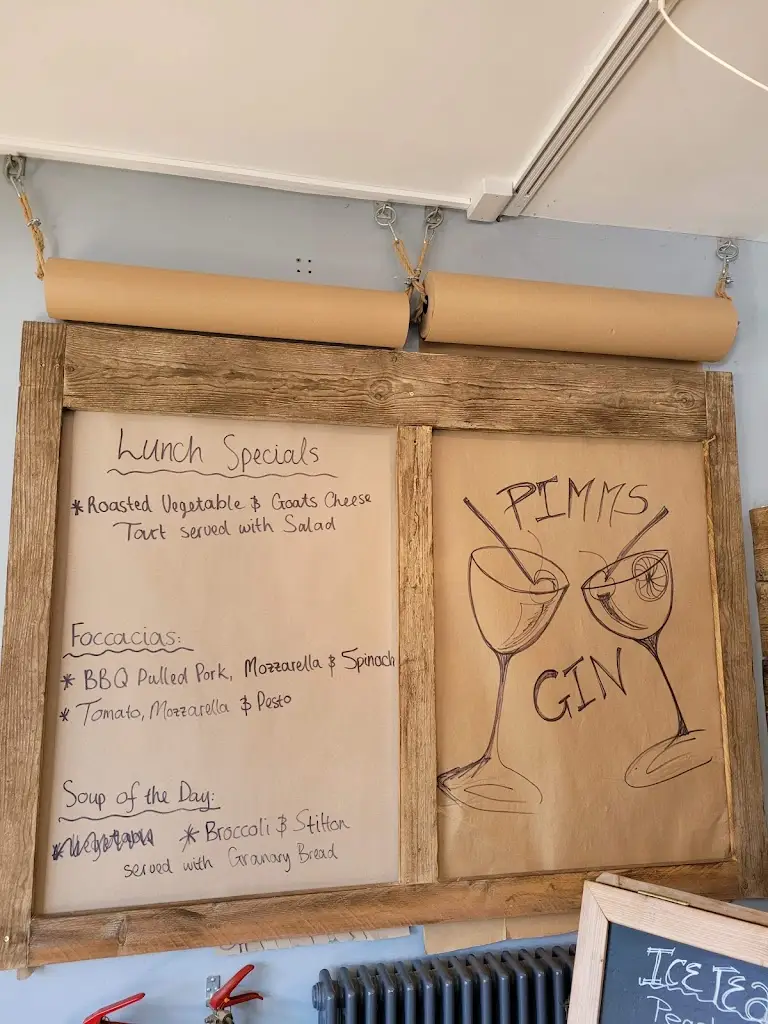 Lunch Specials
* Roasted Vegetable & Goats Cheese
Tart served with Salad
Foccacias:
* BBQ Pulled Pork, Mozzarella & Spinach
* Tomato, Mozzarella & Pesto
Soup of the Day:
* Vegetable * Broccoli & Stilton
served with Granary Bread
PIMMS
GIN
ICE TEA